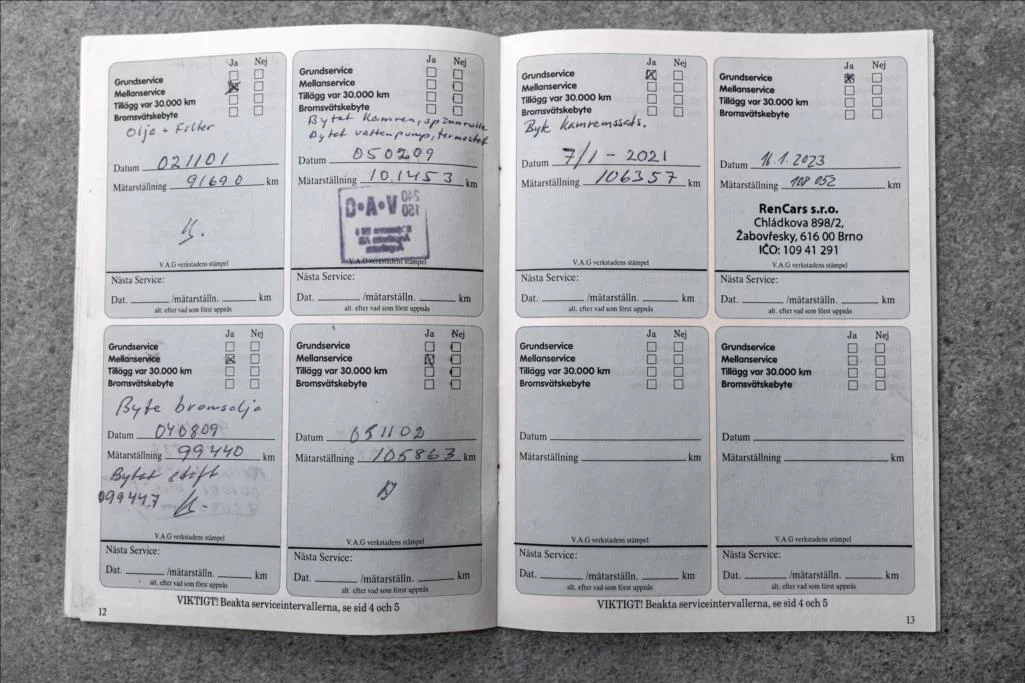 Ja Nej
Grundservice
Mellanservice
Tillägg var 30.000 km
Bromsvätskebyte
Olja + Filter
Datum 021101
Mätarställning 91690 km
V.A.G verkstadens stämpel
Nästa Service:
Dat. /mätarställn. km
alt. efter vad som först uppnås
Ja Nej
Grundservice
Mellanservice
Tillägg var 30.000 km
Bromsvätskebyte
Byte bromsolja
Datum 040809
Mätarställning 99440 km
Bytet stift
099447
V.A.G verkstadens stämpel
Nästa Service:
Dat. /mätarställn. km
alt. efter vad som först uppnås
Ja Nej
Grundservice
Mellanservice
Tillägg var 30.000 km
Bromsvätskebyte
Bytet Kamrem, spännrulle
Bytet vattenpump, termostat
Datum 050209
Mätarställning 10.1453 km
V•A•G
V.A.G verkstadens stämpel
Nästa Service:
Dat. /mätarställn. km
alt. efter vad som först uppnås
Ja Nej
Grundservice
Mellanservice
Tillägg var 30.000 km
Bromsvätskebyte
Datum 051102
Mätarställning 105863 km
V.A.G verkstadens stämpel
Nästa Service:
Dat. /mätarställn. km
alt. efter vad som först uppnås
VIKTIGT! Beakta serviceintervallerna, se sid 4 och 5
12
Ja Nej
Grundservice
Mellanservice
Tillägg var 30.000 km
Bromsvätskebyte
Byte kamremssats.
Datum 7/1 - 2021
Mätarställning 106357 km
V.A.G verkstadens stämpel
Nästa Service:
Dat. /mätarställn. km
alt. efter vad som först uppnås
Ja Nej
Grundservice
Mellanservice
Tillägg var 30.000 km
Bromsvätskebyte
Datum 16.1.2023
Mätarställning 108 052 km
RenCars s.r.o.
Chládkova 898/2,
Žabovřesky, 616 00 Brno
IČO: 109 41 291
V.A.G verkstadens stämpel
Nästa Service:
Dat. /mätarställn. km
alt. efter vad som först uppnås
Ja Nej
Grundservice
Mellanservice
Tillägg var 30.000 km
Bromsvätskebyte
Datum
Mätarställning km
V.A.G verkstadens stämpel
Nästa Service:
Dat. /mätarställn. km
alt. efter vad som först uppnås
Ja Nej
Grundservice
Mellanservice
Tillägg var 30.000 km
Bromsvätskebyte
Datum
Mätarställning km
V.A.G verkstadens stämpel
Nästa Service:
Dat. /mätarställn. km
alt. efter vad som först uppnås
VIKTIGT! Beakta serviceintervallerna, se sid 4 och 5
13